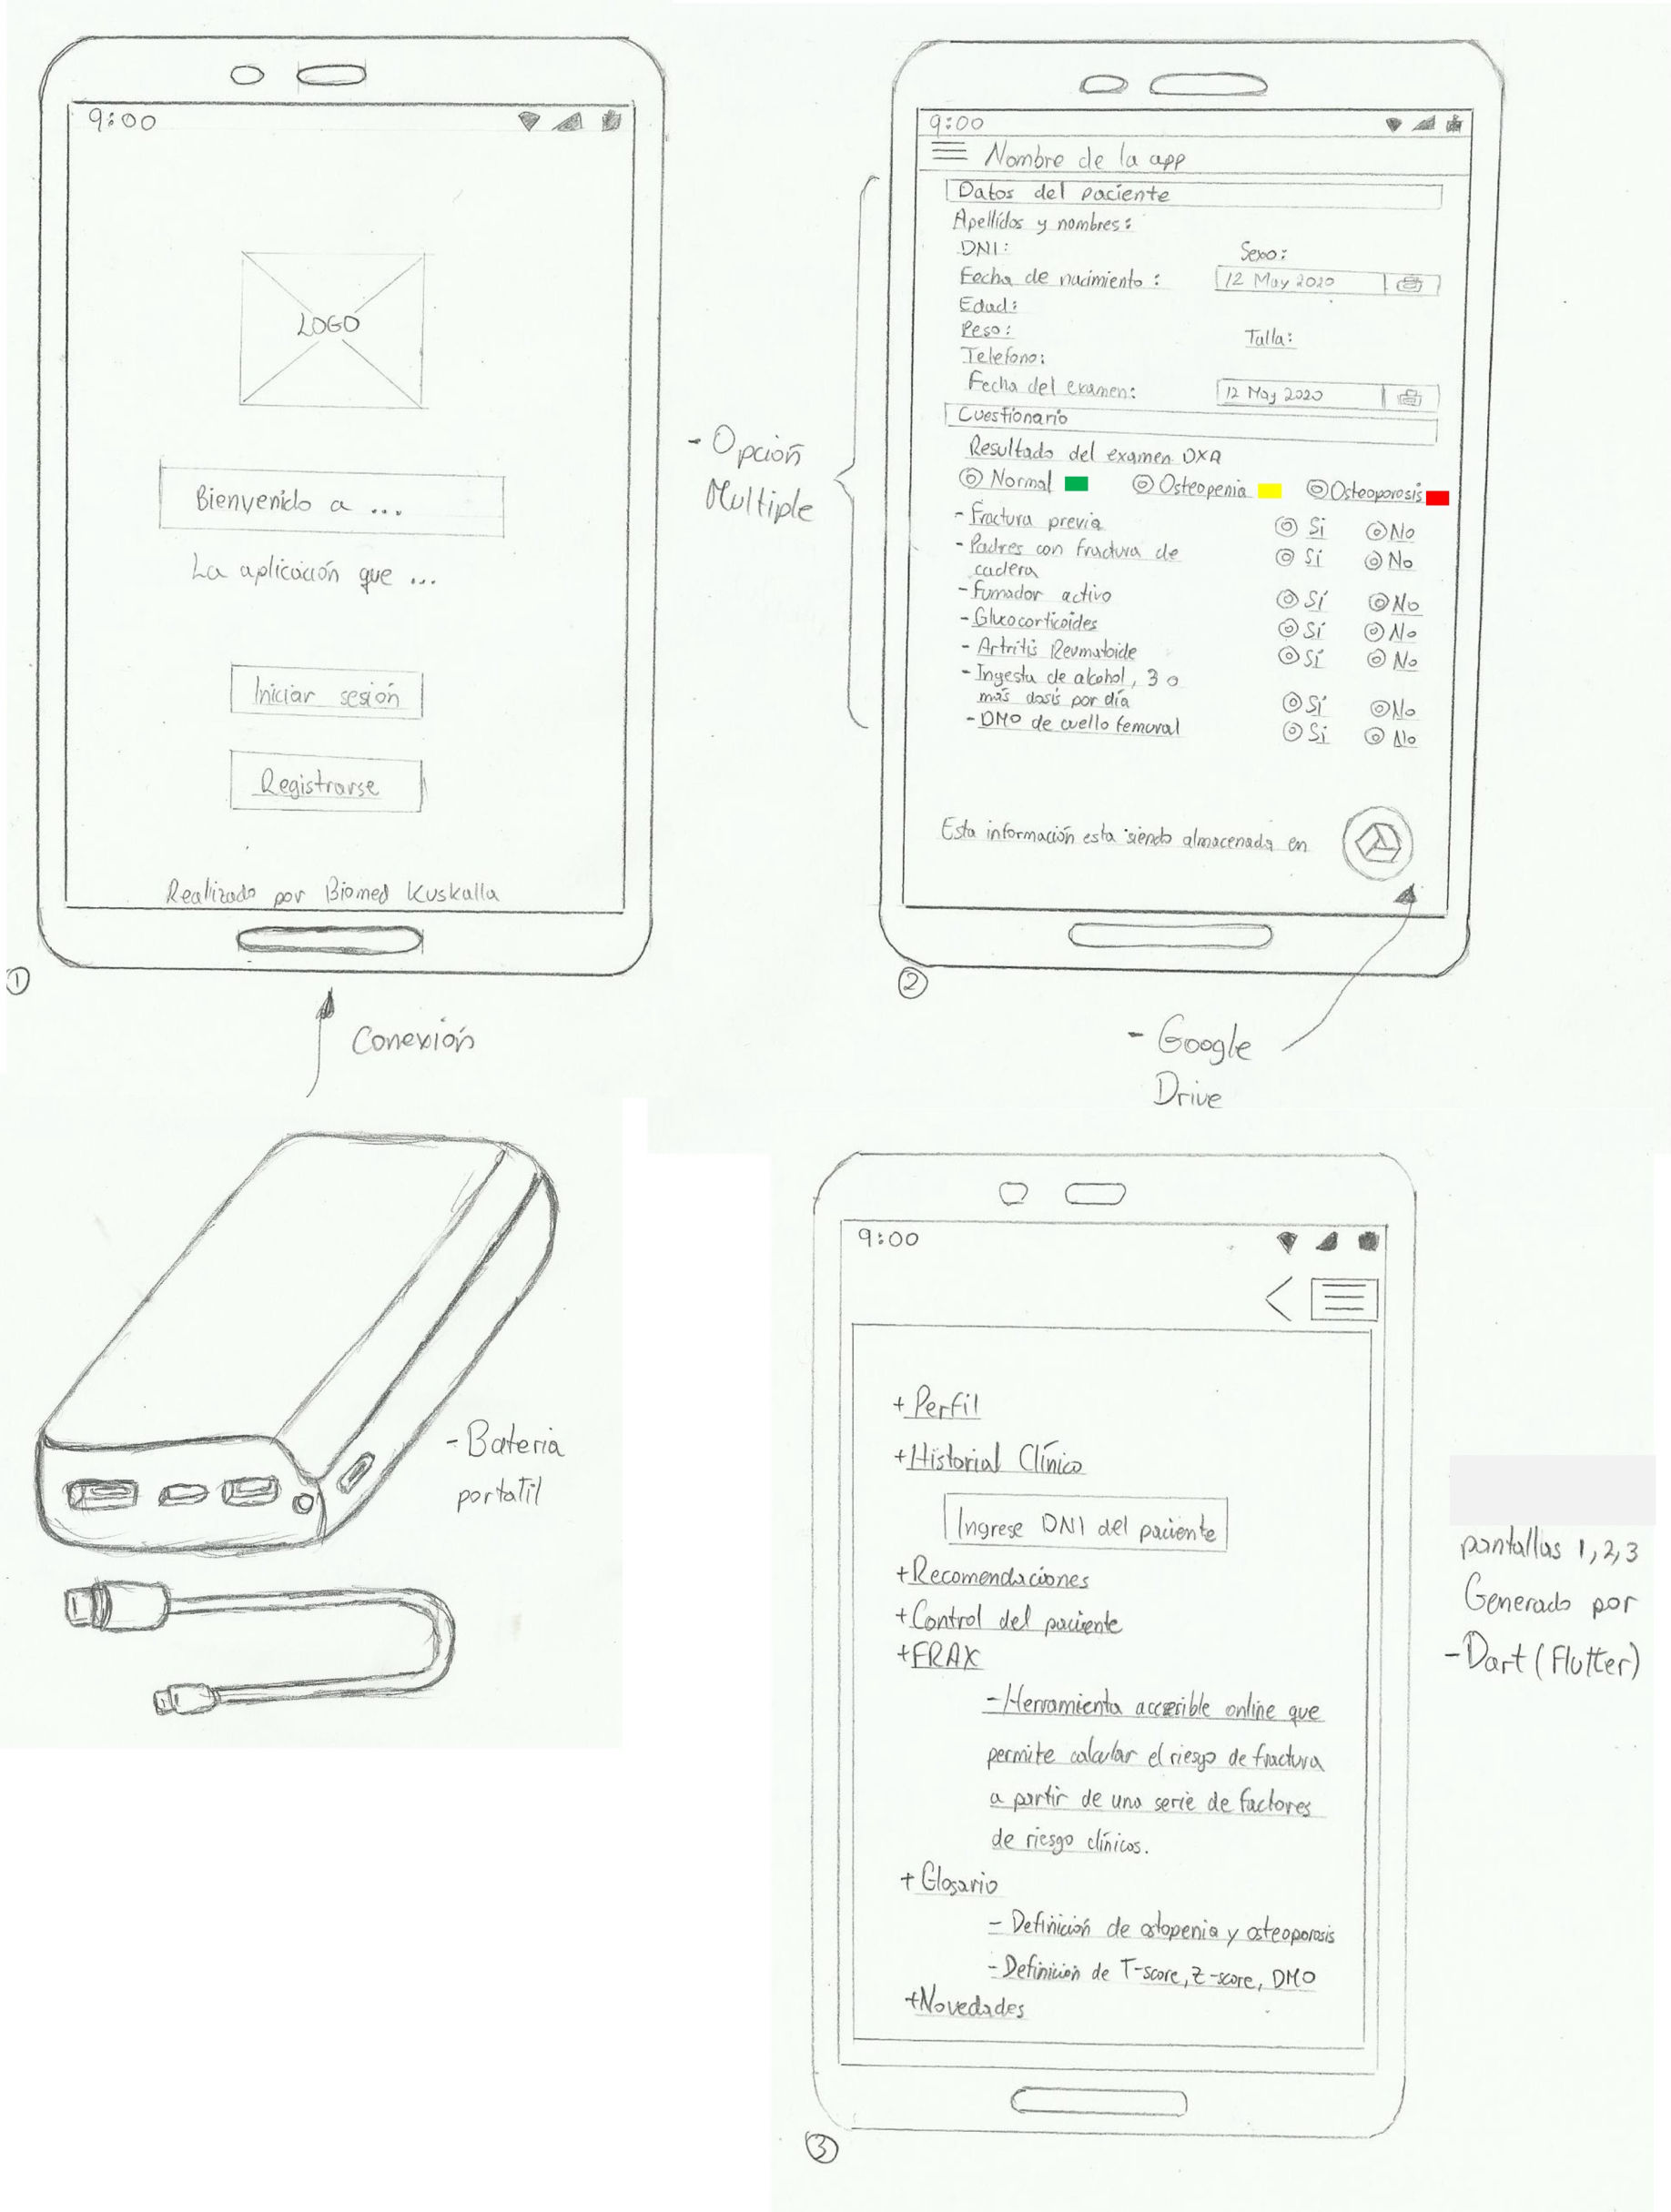 9:00
LOGO
Bienvenido a ...
La aplicación que ...
Iniciar sesión
Registrarse
Realizado por Biomed Kuskalla
1
Conexión
- Opción
Multiple
9:00
Nombre de la app
Datos del paciente
Apellidos y nombres:
DNI: Sexo:
Fecha de nacimiento: 12 May 2020
Edad:
Peso: Talla:
Telefono:
Fecha del examen: 12 May 2020
Cuestionario
Resultado del examen DXA
Normal Osteopenia Osteoporosis
- Fractura previa Si No
- Padres con fractura de Sí No
cadera
- Fumador activo Sí No
- Glucocorticoides Sí No
- Artritis Reumatoide Sí No
- Ingesta de alcohol, 3 o
más dosis por día Sí No
- DMO de cuello femoral Si No
Esta información esta siendo almacenada en
2
- Google
Drive
- Bateria
portatil
9:00
+ Perfil
+ Historial Clínico
Ingrese DNI del paciente
+ Recomendaciones
+ Control del paciente
+ FRAX
- Herramienta accesible online que
permite calcular el riesgo de fractura
a partir de una serie de factores
de riesgo clínicos.
+ Glosario
- Definición de ostopenia y osteoporosis
- Definición de T-score, Z-score, DMO
+ Novedades
3
pantallas 1,2,3
Generado por
- Dart (Flutter)